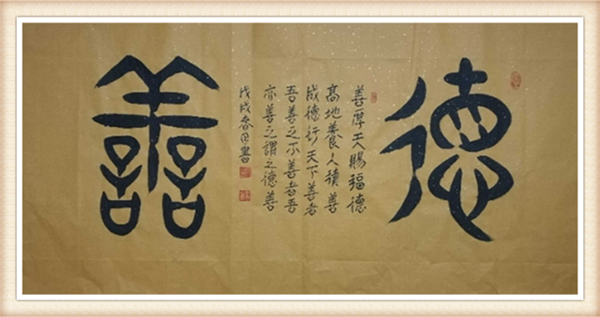 德善
善厚天賜福德
高地養人積善
成德行天下善者
吾善之不善者吾
亦善之謂之德善
戊戌書